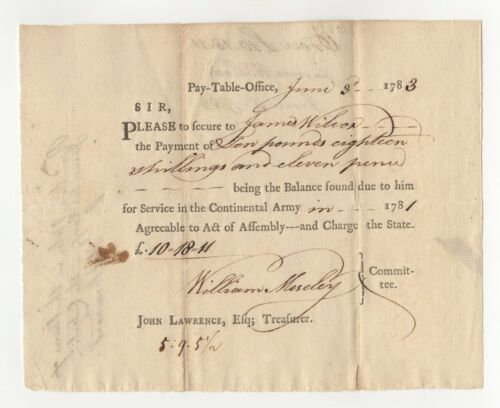 Pay-Table-Office, June 3d - - 1783
SIR,
PLEASE to secure to James Wilcox
the Payment of Ten pounds eighteen
shillings and eleven pence
being the Balance found due to him
for Service in the Continental Army in - - - 1781
Agreeable to Act of Assembly---and Charge the State.
£.10-18-11
William Moseley } Commit-
tee.
JOHN LAWRENCE, Esq; Treasurer.
5-9-5½